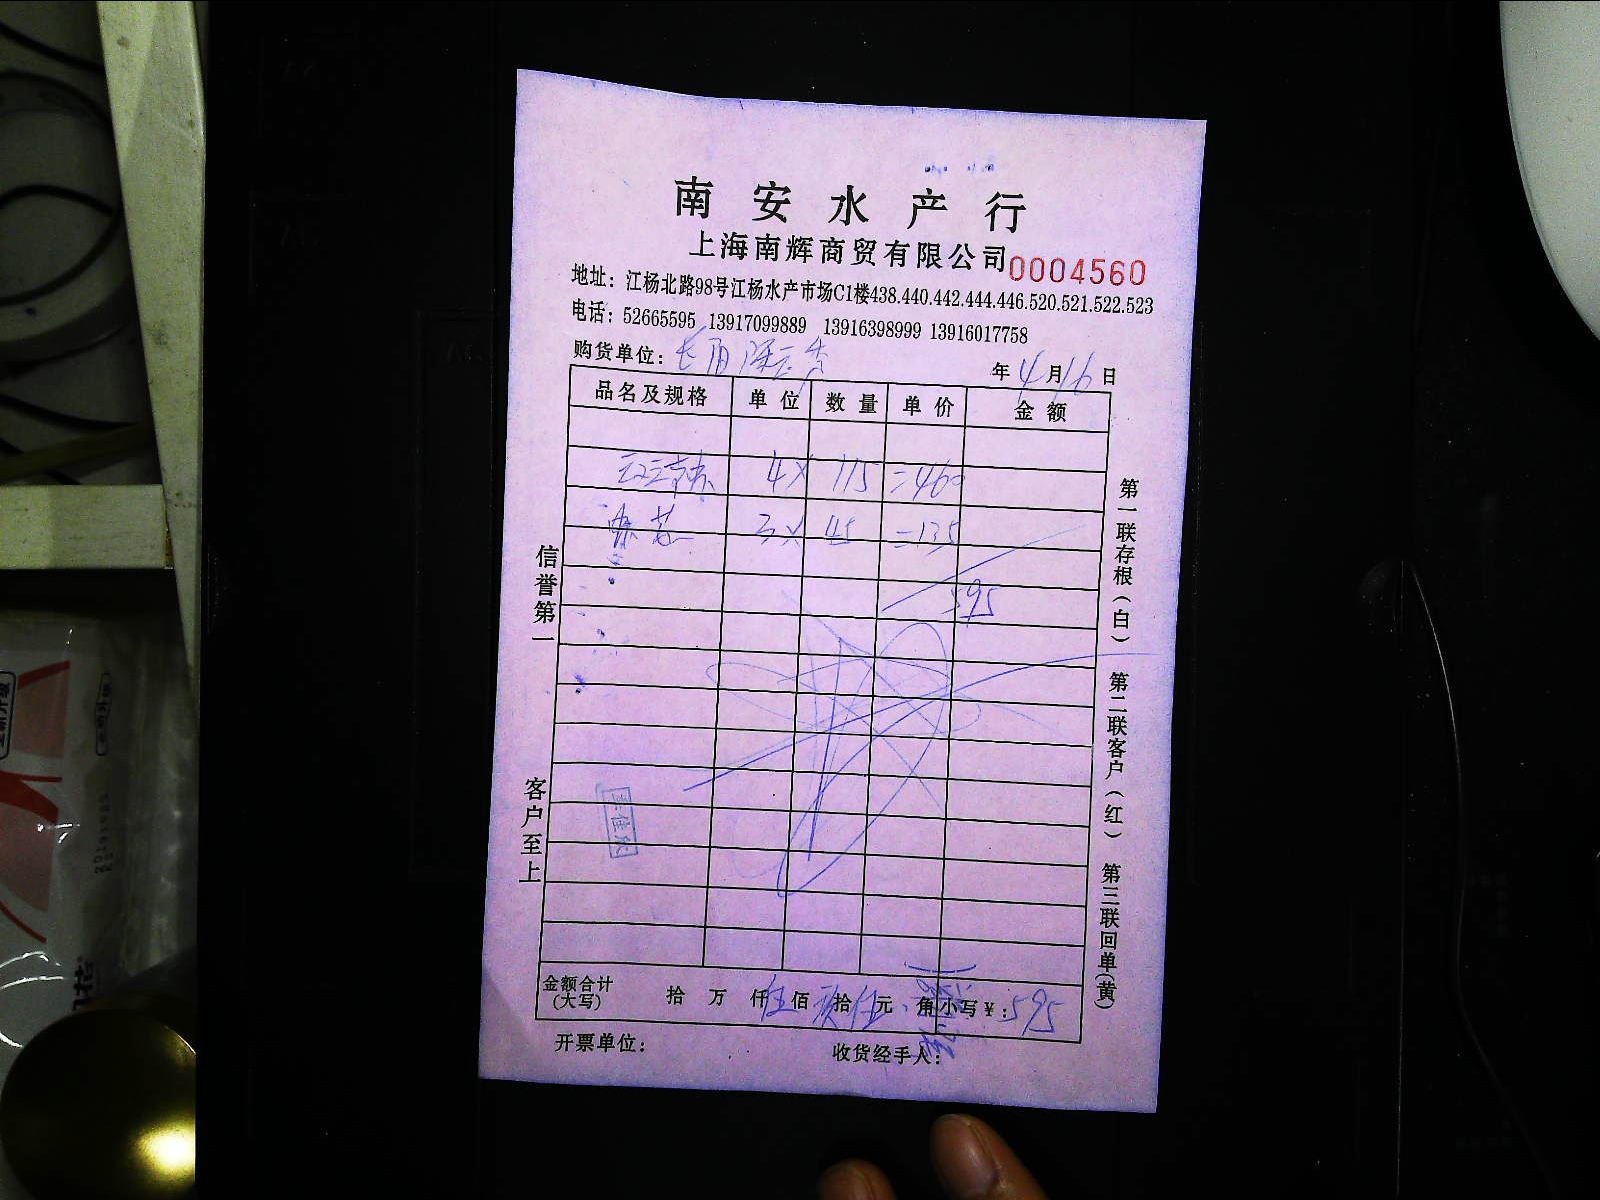 南安水产行
上海南辉商贸有限公司 0004560
地址：江杨北路98号江杨水产市场C1楼438.440.442.444.446.520.521.522.523
电话：52665595 13917099889 13916398999 13916017758
购货单位：
年 4 月 16 日
品名及规格 单位 数量 单价 金额
4 × 115 = 460
3 × 45 = 135
595
信誉第一 客户至上
第一联存根（白） 第二联客户（红） 第三联回单（黄）
金额合计（大写） 拾 万 仟 伍 佰 玖 拾 伍 元 角 小写￥：595
开票单位： 收货经手人：